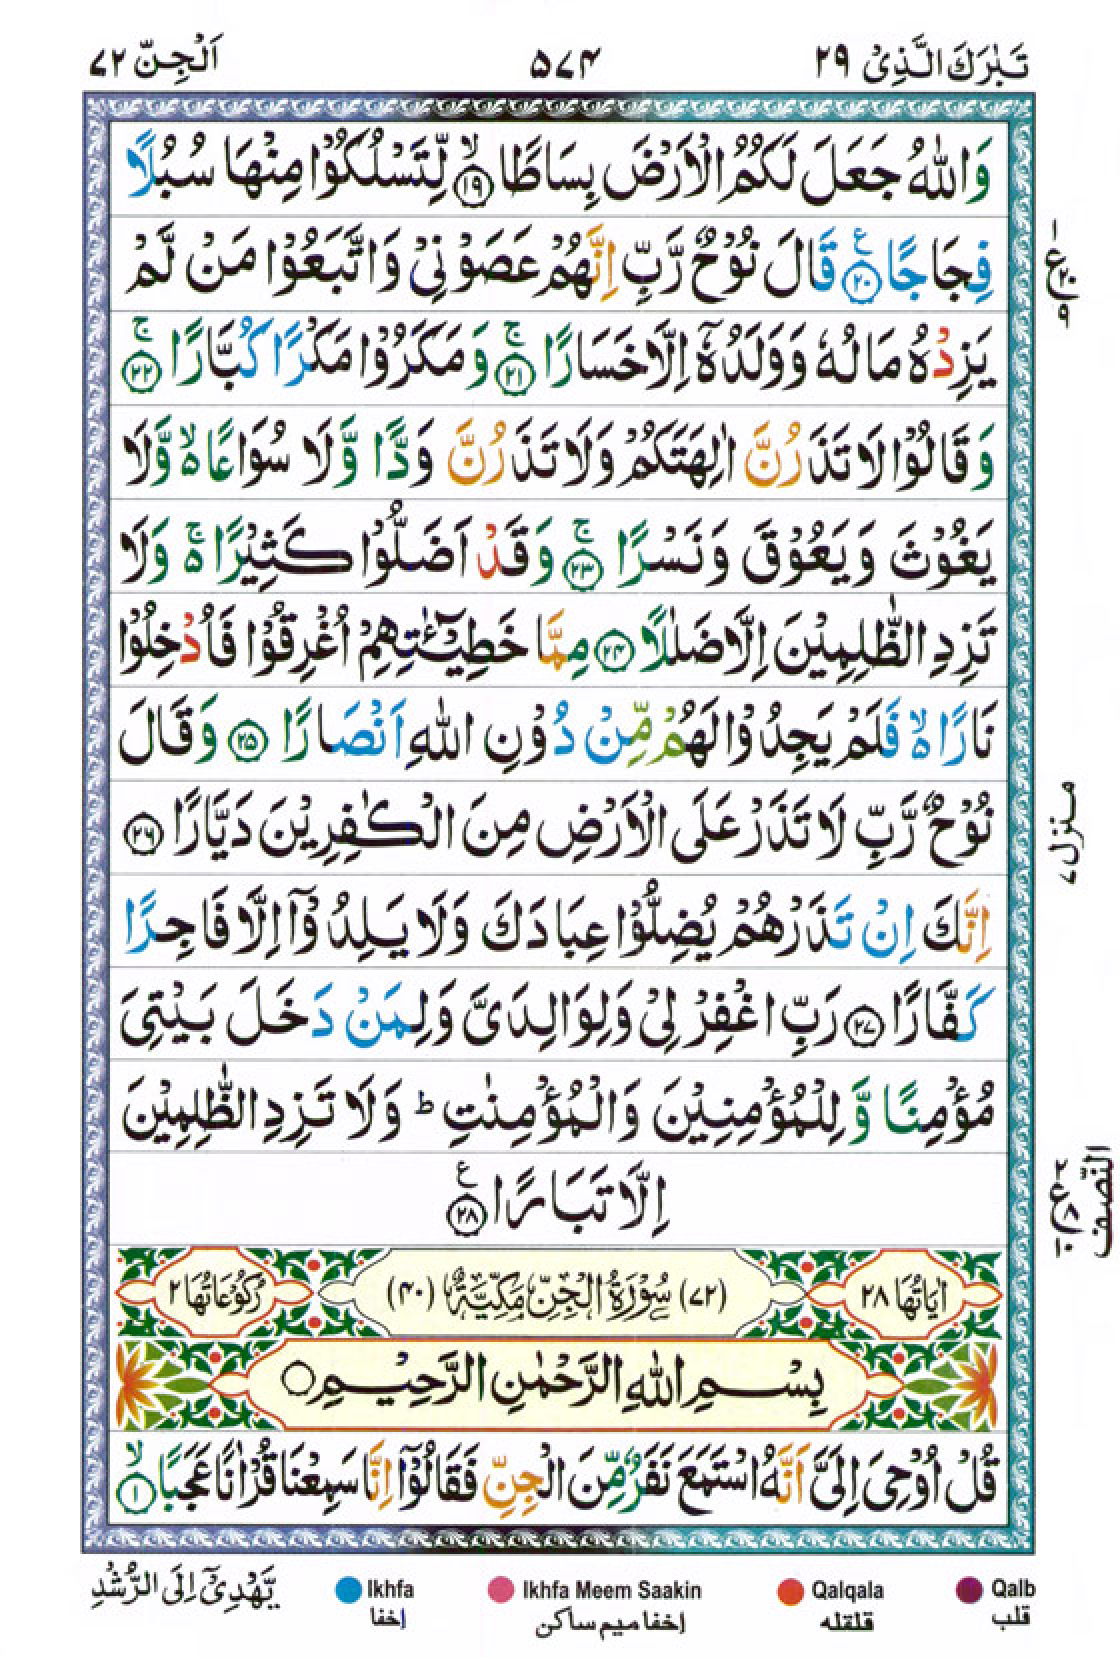 تَبٰرَكَ الَّذِیْ ٢٩
۵۷۴
اَلْجِنّ ۷۲
وَاللّٰهُ جَعَلَ لَكُمُ الْاَرْضَ بِسَاطًا ۙ‏﴿۱۹﴾ لِّتَسْلُكُوْا مِنْهَا سُبُلًا
فِجَاجًا ﴿۲۰﴾ ع قَالَ نُوْحٌ رَّبِّ اِنَّهُمْ عَصَوْنِیْ وَاتَّبَعُوْا مَنْ لَّمْ
یَزِدْهُ مَالُهٗ وَوَلَدُهٗۤ اِلَّا خَسَارًا ۚ‏﴿۲۱﴾ وَمَكَرُوْا مَكْرًا كُبَّارًا ۚ‏﴿۲۲﴾
وَقَالُوْا لَا تَذَرُنَّ اٰلِهَتَكُمْ وَلَا تَذَرُنَّ وَدًّا وَّلَا سُوَاعًا ۙ۬ وَّلَا
یَغُوْثَ وَیَعُوْقَ وَنَسْرًا ۚ‏﴿۲۳﴾ وَقَدْ اَضَلُّوْا كَثِیْرًا ۚ۬ وَلَا
تَزِدِ الظّٰلِمِیْنَ اِلَّا ضَلٰلًا ﴿۲۴﴾ مِمَّا خَطِیْٓـٰٔتِهِمْ اُغْرِقُوْا فَاُدْخِلُوْا
نَارًا ۙ۬ فَلَمْ یَجِدُوْا لَهُمْ مِّنْ دُوْنِ اللّٰهِ اَنْصَارًا ﴿۲۵﴾ وَقَالَ
نُوْحٌ رَّبِّ لَا تَذَرْ عَلَی الْاَرْضِ مِنَ الْكٰفِرِیْنَ دَیَّارًا ﴿۲۶﴾
اِنَّكَ اِنْ تَذَرْهُمْ یُضِلُّوْا عِبَادَكَ وَلَا یَلِدُوْۤا اِلَّا فَاجِرًا
كَفَّارًا ﴿۲۷﴾ رَبِّ اغْفِرْ لِیْ وَلِوَالِدَیَّ وَلِمَنْ دَخَلَ بَیْتِیَ
مُؤْمِنًا وَّ لِلْمُؤْمِنِیْنَ وَالْمُؤْمِنٰتِ ؕ وَلَا تَزِدِ الظّٰلِمِیْنَ
اِلَّا تَبَارًا ﴿۲۸﴾ ع
منزل ۷
النّصف
اٰیَاتُهَا ۲۸ (۷۲) سُوْرَةُ الْجِنِّ مَكِّیَّةٌ (۴۰) رُكُوْعَاتُهَا ۲
بِسْمِ اللّٰهِ الرَّحْمٰنِ الرَّحِیْمِ ۝
قُلْ اُوْحِیَ اِلَیَّ اَنَّهُ اسْتَمَعَ نَفَرٌ مِّنَ الْجِنِّ فَقَالُوْۤا اِنَّا سَمِعْنَا قُرْاٰنًا عَجَبًا ۙ‏﴿۱﴾
یَّهْدِیْۤ اِلَی الرُّشْدِ
Ikhfa Ikhfa Meem Saakin Qalqala Qalb
اخفا اخفا میم ساکن قلقله قلب